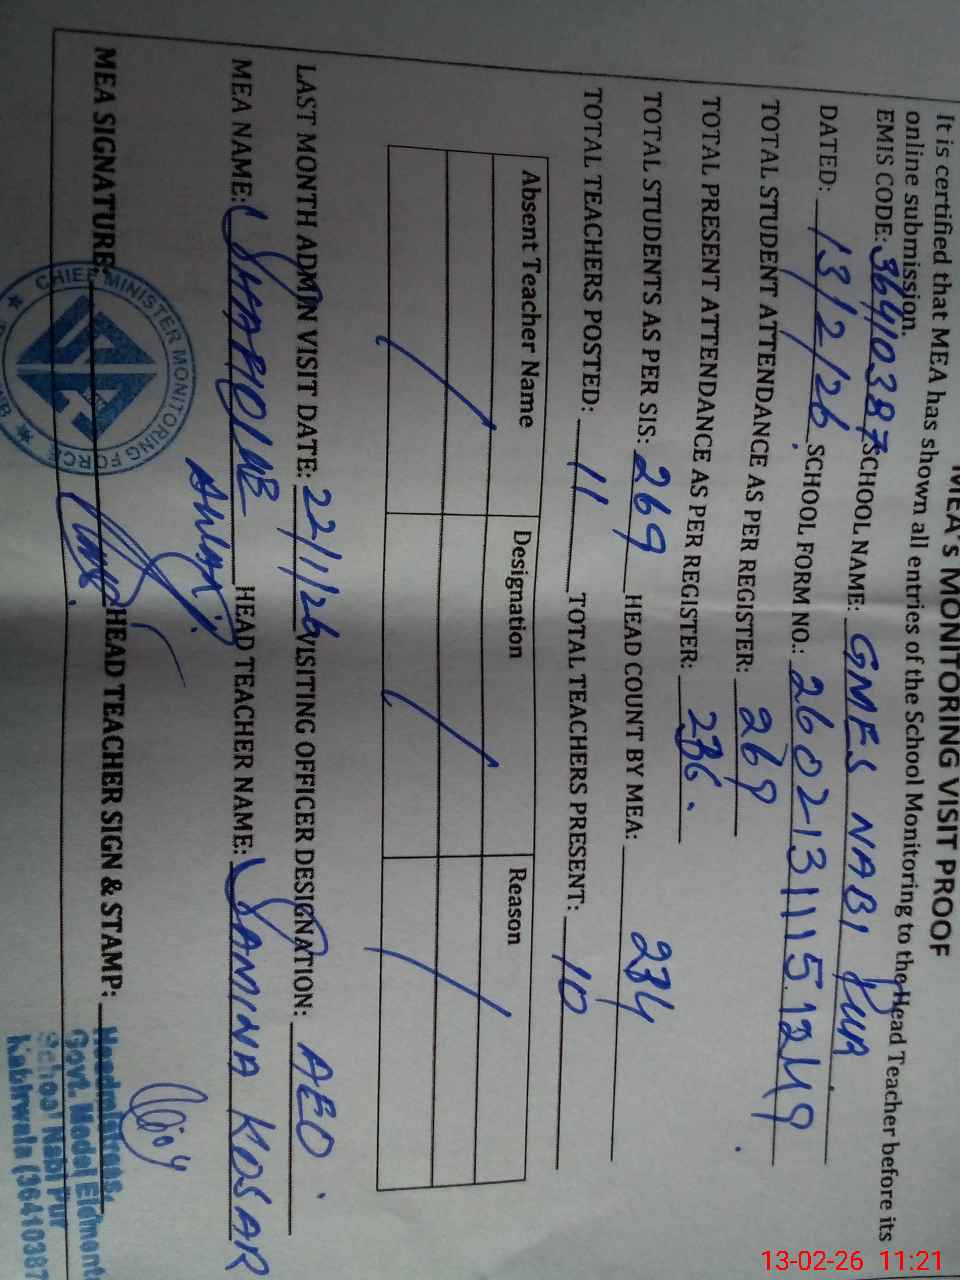 MEA's MONITORING VISIT PROOF
It is certified that MEA has shown all entries of the School Monitoring to the Head Teacher before its
online submission.
EMIS CODE: 36410387 SCHOOL NAME: GMES NABI PUR
DATED: 13/2/26 SCHOOL FORM NO.: 260213111513249
TOTAL STUDENT ATTENDANCE AS PER REGISTER: 269
TOTAL PRESENT ATTENDANCE AS PER REGISTER: 236.
TOTAL STUDENTS AS PER SIS: 269 HEAD COUNT BY MEA: 234
TOTAL TEACHERS POSTED: 11 TOTAL TEACHERS PRESENT: 10
Absent Teacher Name Designation Reason
LAST MONTH ADMIN VISIT DATE: 22/1/26 VISITING OFFICER DESIGNATION: AEO.
MEA NAME: HEAD TEACHER NAME: SAMINA KOSAR
MEA SIGNATURE: HEAD TEACHER SIGN & STAMP:
CHIEF MINISTER MONITORING FORCE
Headmistress,
Govt. Model Eldment
School Nabi Pur
Kabirwala (36410387
13-02-26 11:21